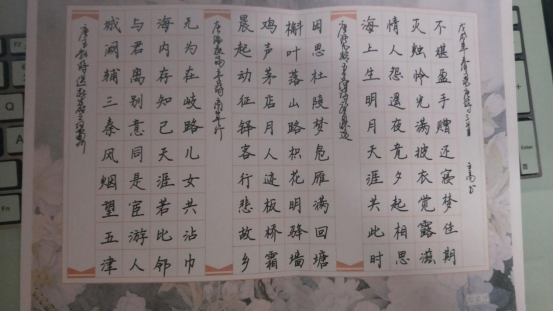 城阙辅三秦风烟望五津
与君离别意同是宦游人
海内存知己天涯若比邻
无为在歧路儿女共沾巾
晨起动征铎客行悲故乡
鸡声茅店月人迹板桥霜
槲叶落山路枳花明驿墙
因思杜陵梦凫雁满回塘
海上生明月天涯共此时
情人怨遥夜竟夕起相思
灭烛怜光满披衣觉露滋
不堪盈手赠还寝梦佳期